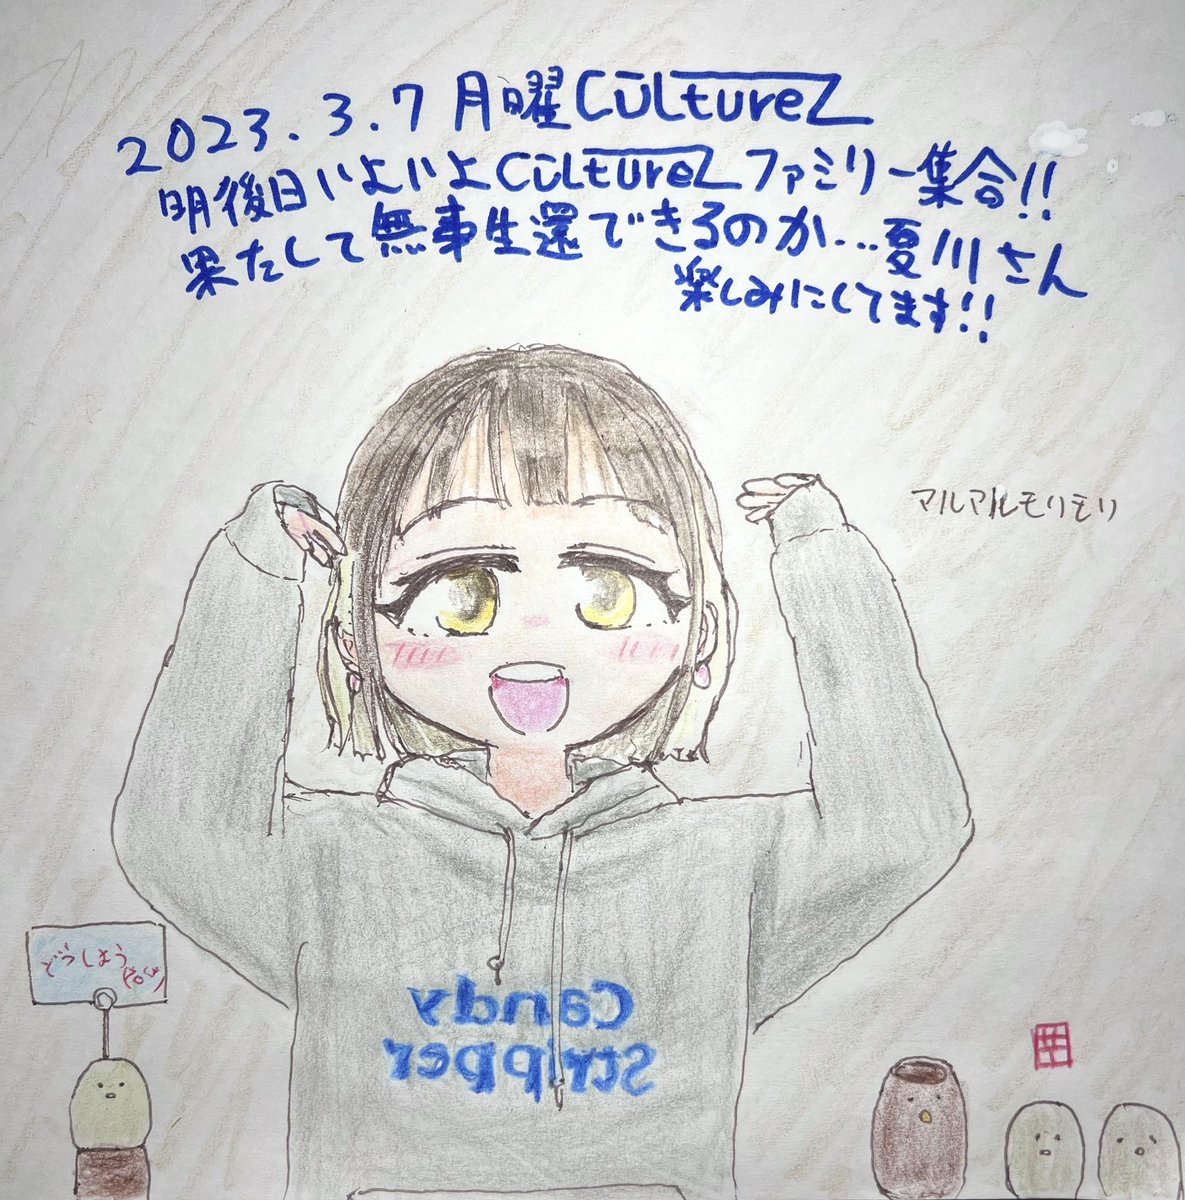 2023.3.7 月曜CULtureZ
明後日いよいよCULtureZファミリー集合!!
果たして無事生還できるのか…夏川さん
楽しみにしてます!!
マルマルモリモリ
どうしよう
Candy
stripper